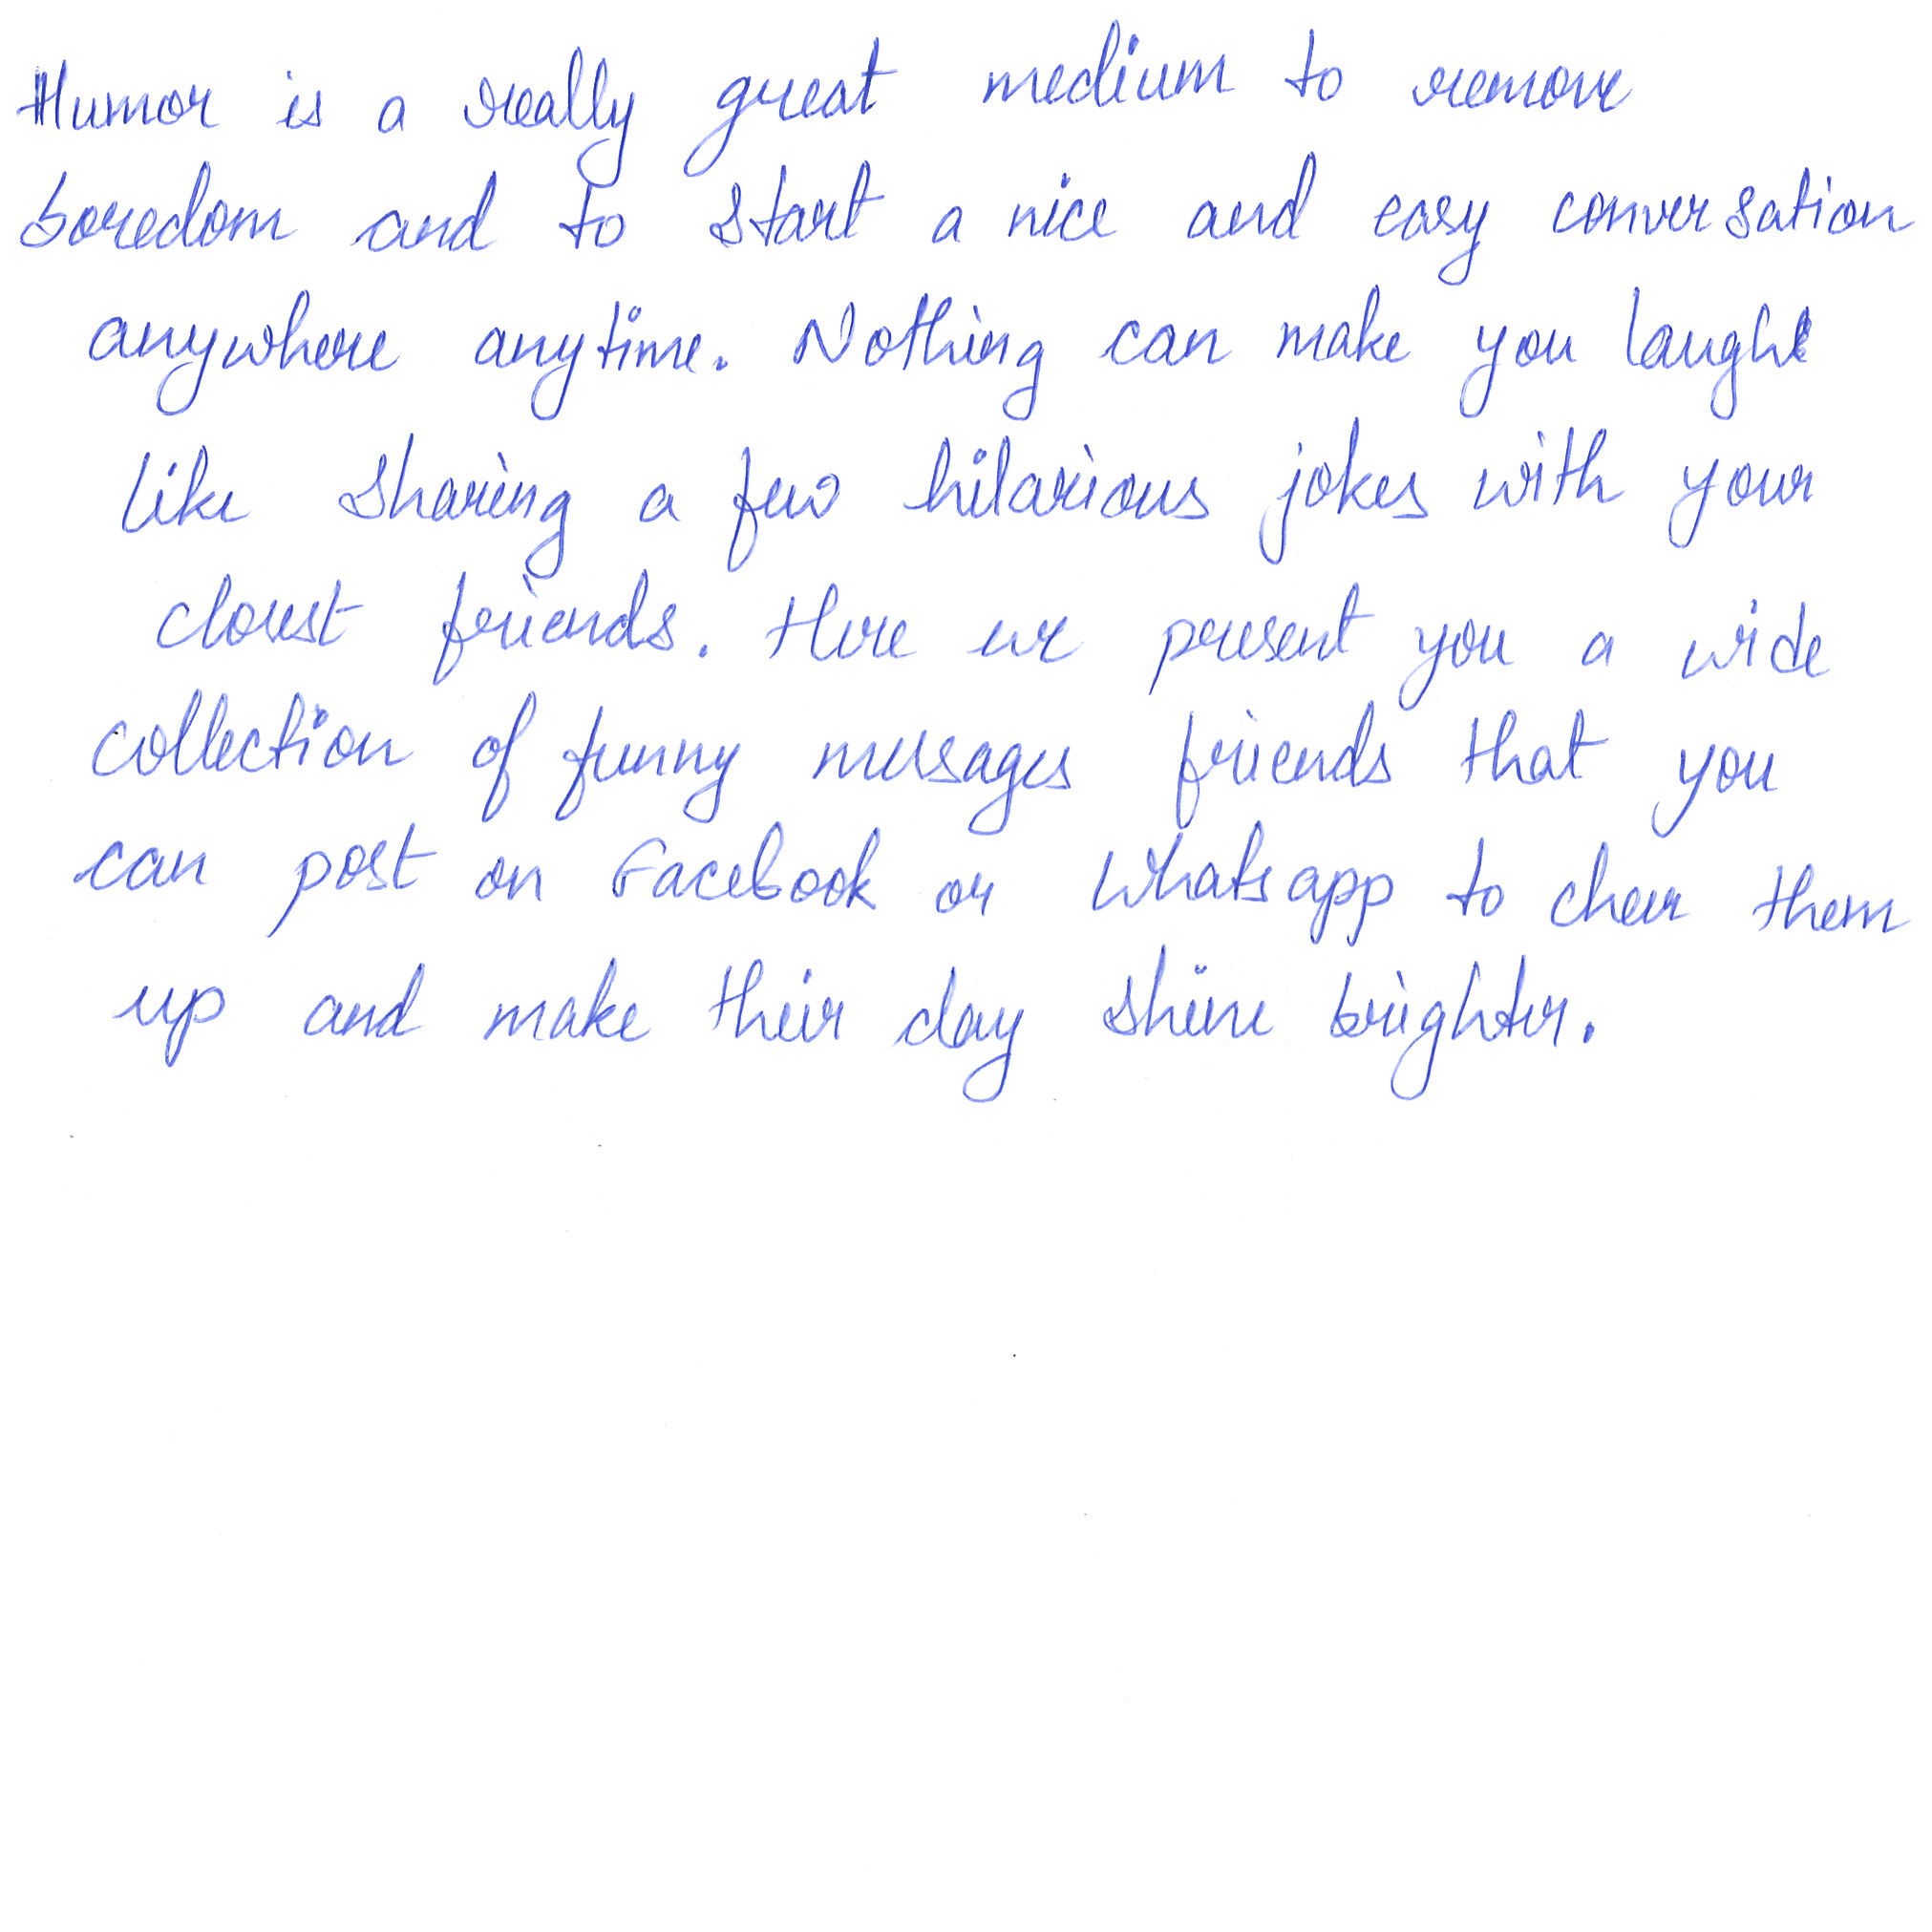 Humor is a really great medium to remove
boredom and to start a nice and easy conversation
anywhere anytime. Nothing can make you laugh
like sharing a few hilarious jokes with your
closest friends. Here we present you a wide
collection of funny messages friends that you
can post on Facebook or Whatsapp to cheer them
up and make their day shine brighter.